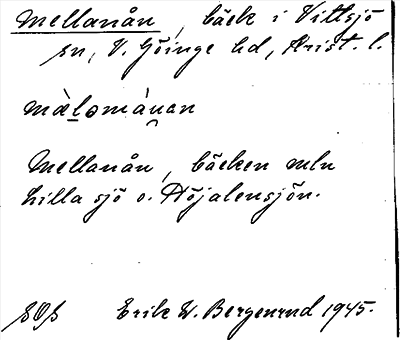 Mellanån, bäck i Vittsjö
sn, V. Göinge hd, Krist. l.
mæ̀lomànan
Mellanån, bäcken mln
hilla sjö o. Höjalensjön.
SOS Erik W. Bergenrud 1945.